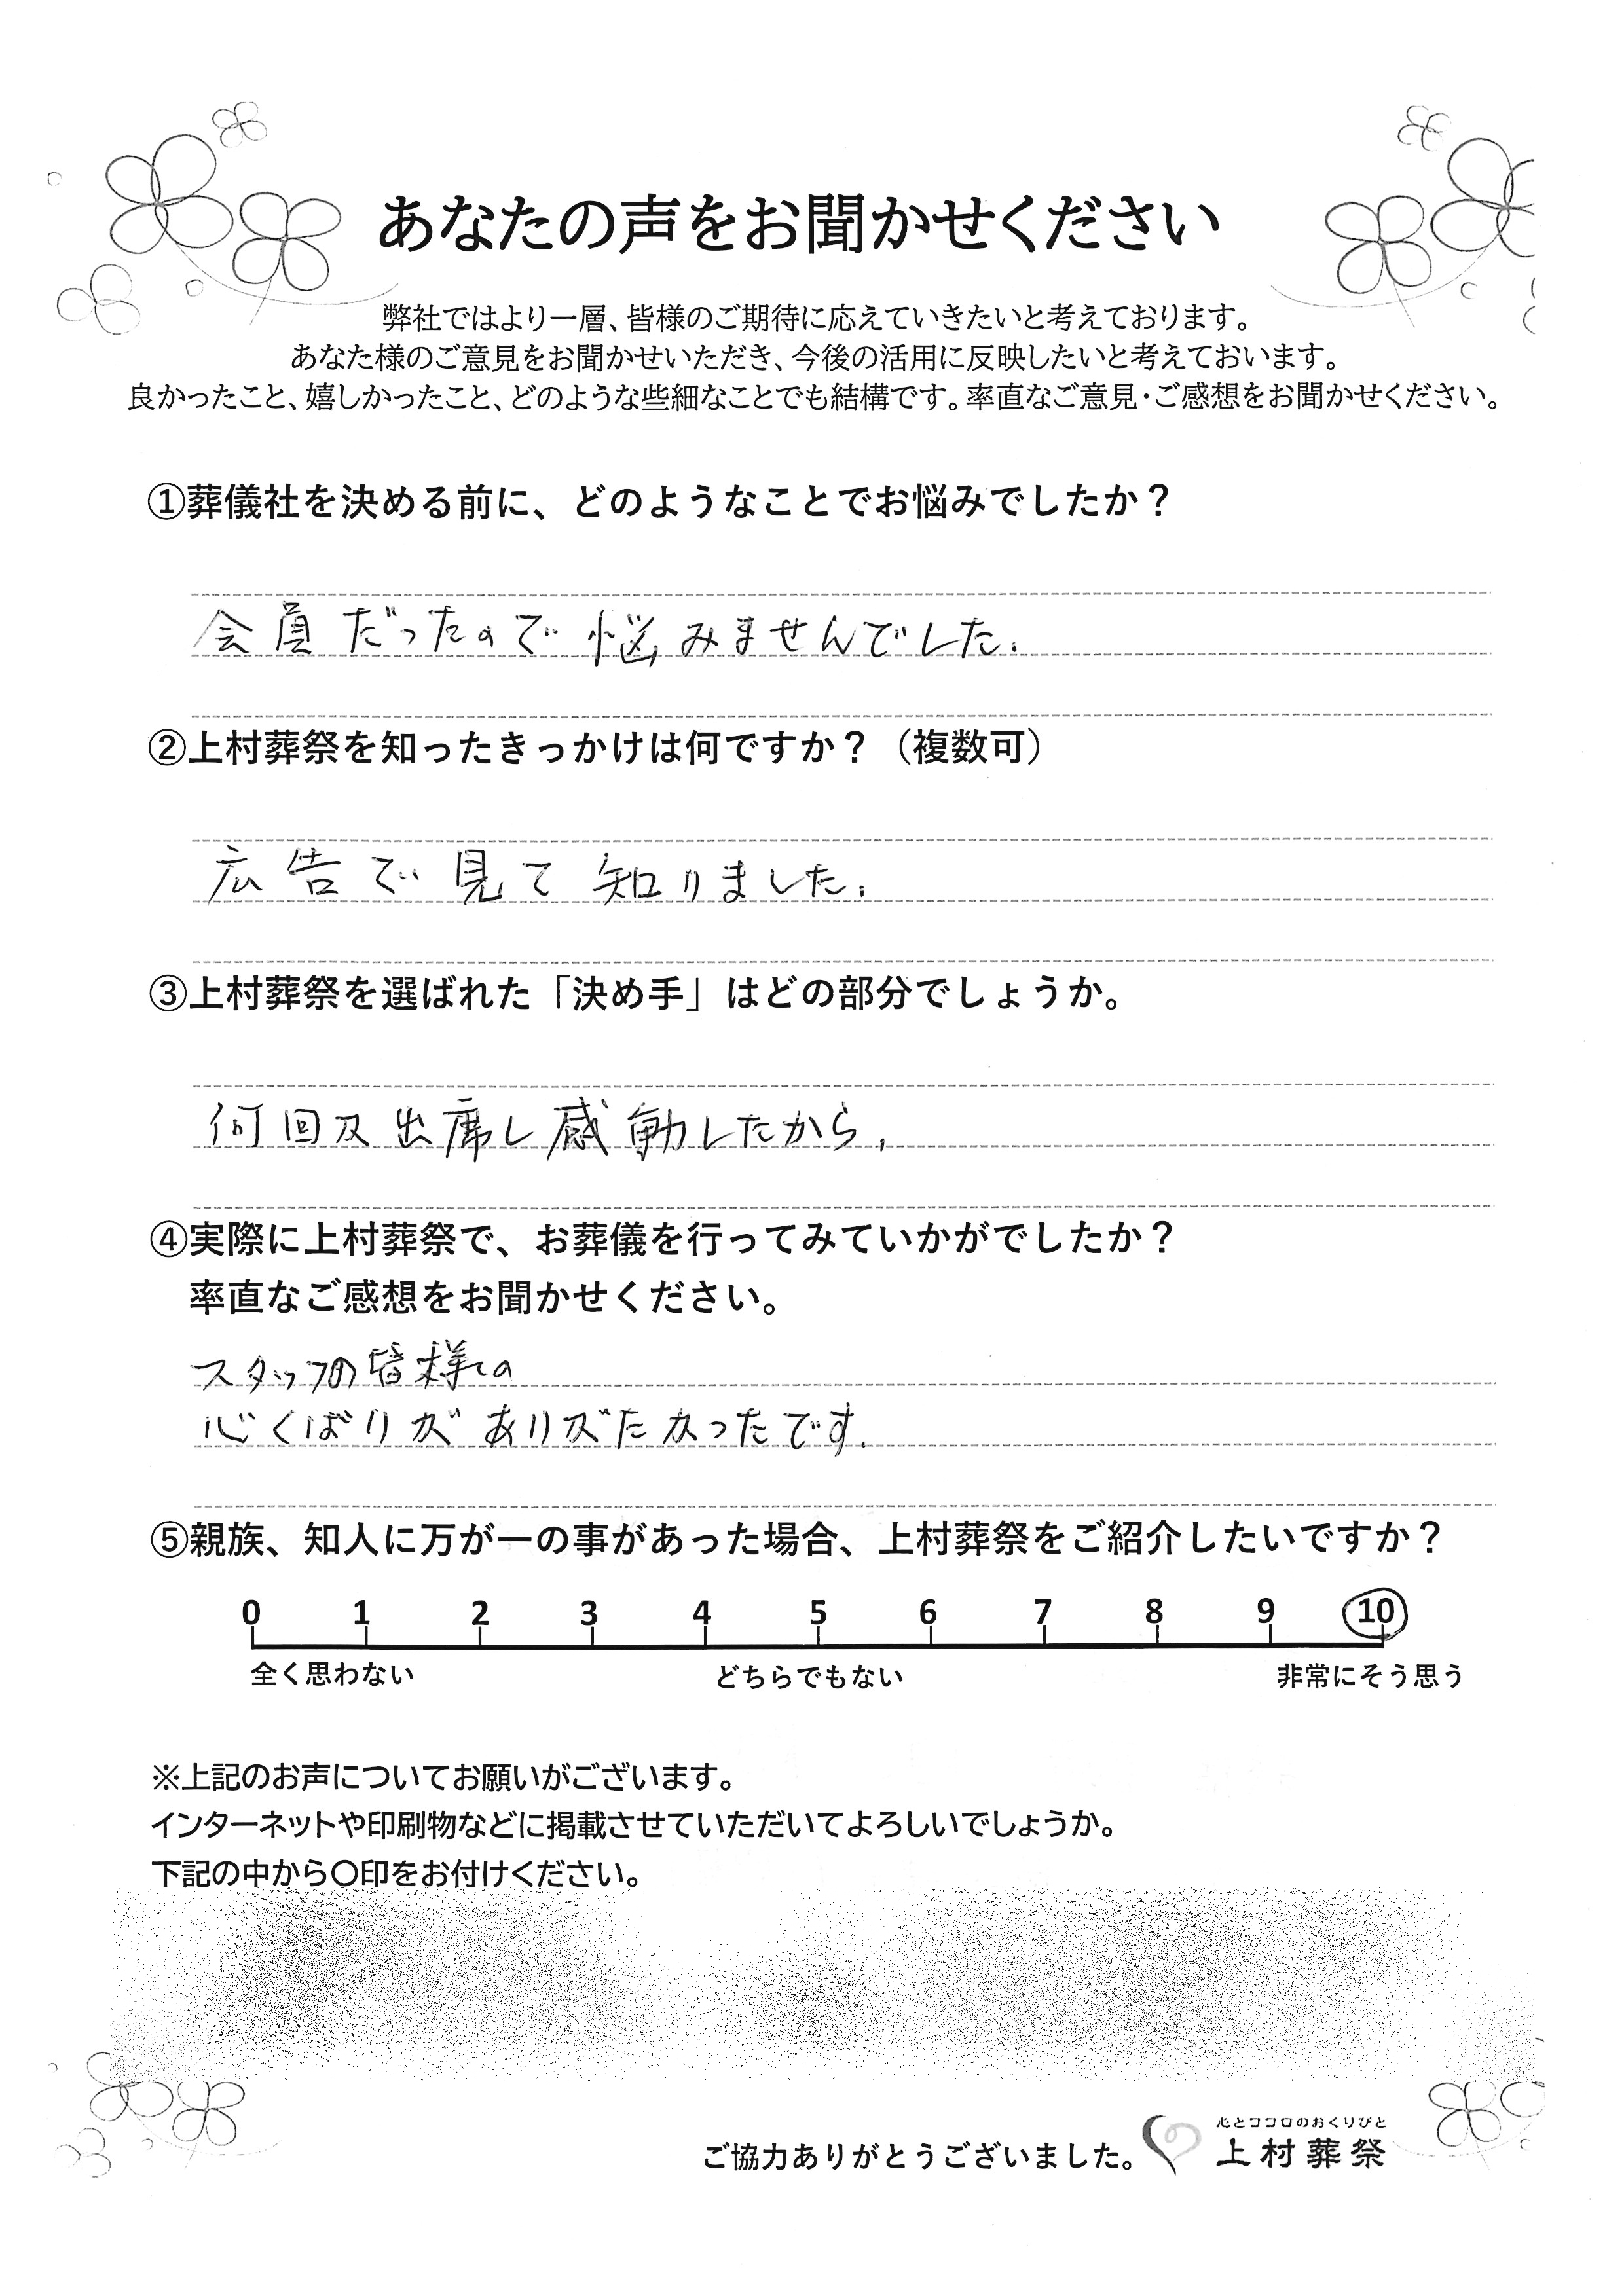 あなたの声をお聞かせください
弊社ではより一層、皆様のご期待に応えていきたいと考えております。
あなた様のご意見をお聞かせいただき、今後の活用に反映したいと考えておいます。
良かったこと、嬉しかったこと、どのような些細なことでも結構です。率直なご意見・ご感想をお聞かせください。
①葬儀社を決める前に、どのようなことでお悩みでしたか？
会員だったので悩みませんでした.
②上村葬祭を知ったきっかけは何ですか？（複数可）
広告で見て知りました.
③上村葬祭を選ばれた「決め手」はどの部分でしょうか。
何回又出席し感動したから.
④実際に上村葬祭で、お葬儀を行ってみていかがでしたか？
率直なご感想をお聞かせください。
スタッフの皆様の
心くばりがありがたかったです.
⑤親族、知人に万が一の事があった場合、上村葬祭をご紹介したいですか？
0 1 2 3 4 5 6 7 8 9 10
全く思わない どちらでもない 非常にそう思う
※上記のお声についてお願いがございます。
インターネットや印刷物などに掲載させていただいてよろしいでしょうか。
下記の中から〇印をお付けください。
心とココロのおくりびと
ご協力ありがとうございました。 上村葬祭